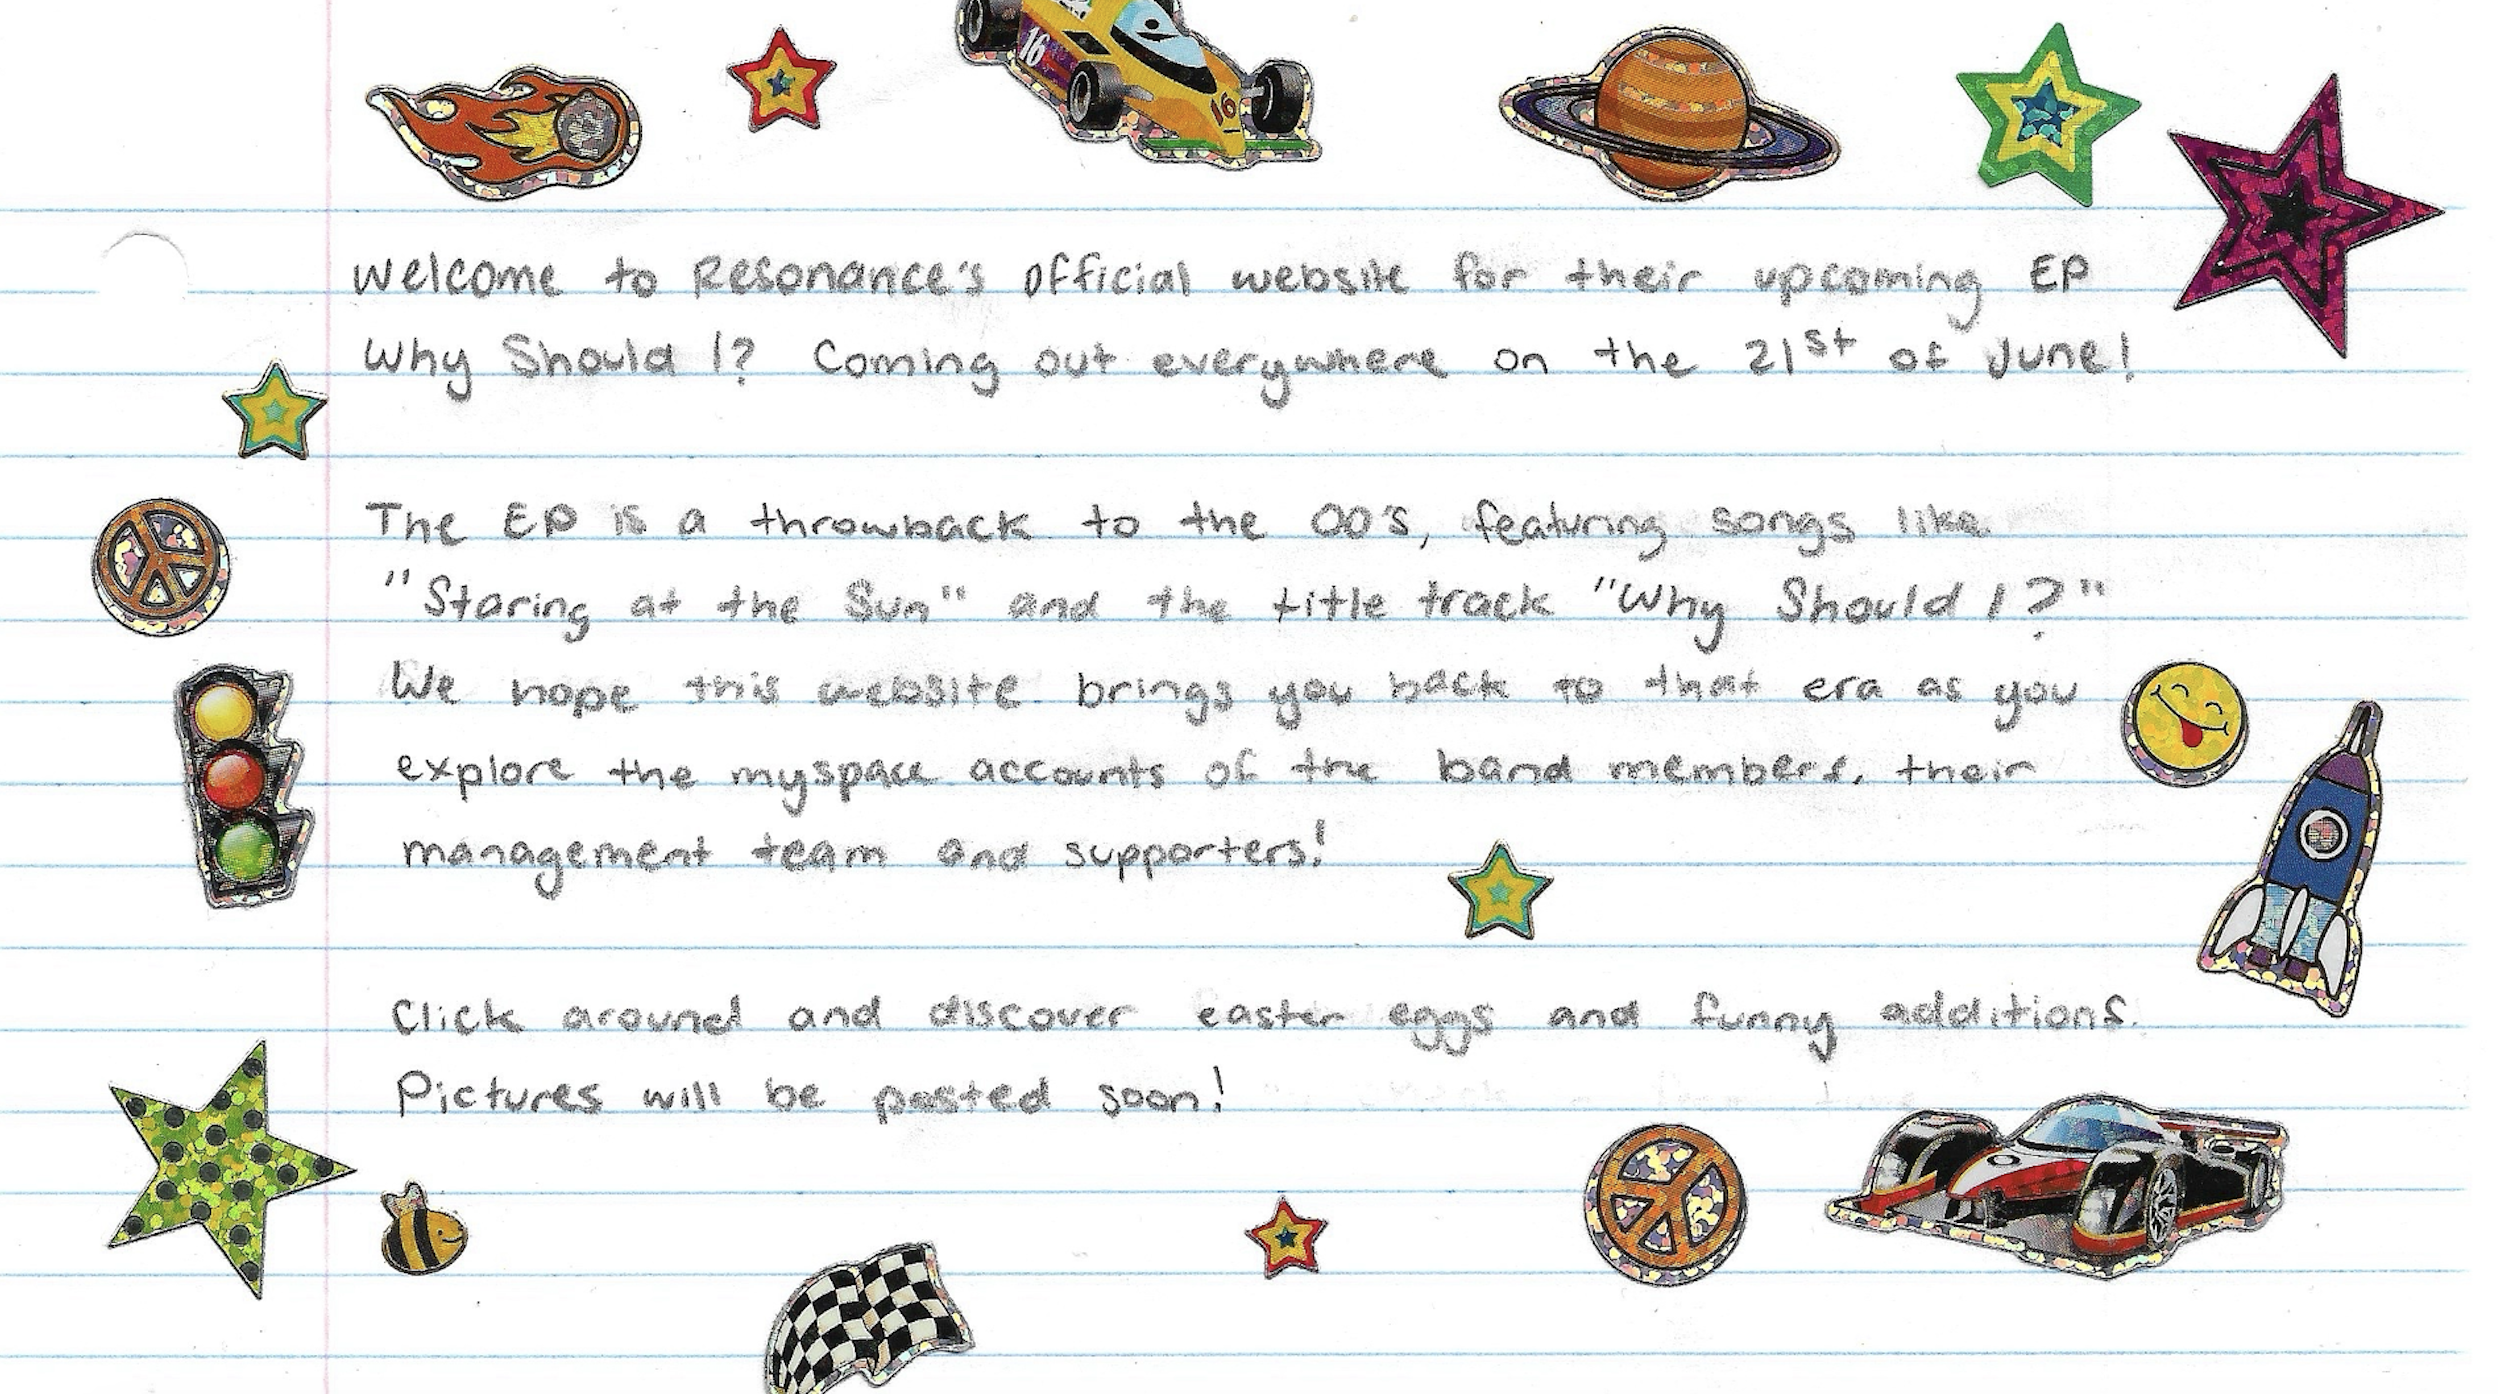 16
16
Welcome to Resonance's official website for their upcoming EP
Why Should I? Coming out everywhere on the 21st of June!
The EP is a throwback to the 00's, featuring songs like
"Staring at the Sun" and the title track "Why Should I?"
We hope this website brings you back to that era as you
explore the myspace accounts of the band members, their
management team and supporters!
Click around and discover easter eggs and funny additions.
Pictures will be posted soon!